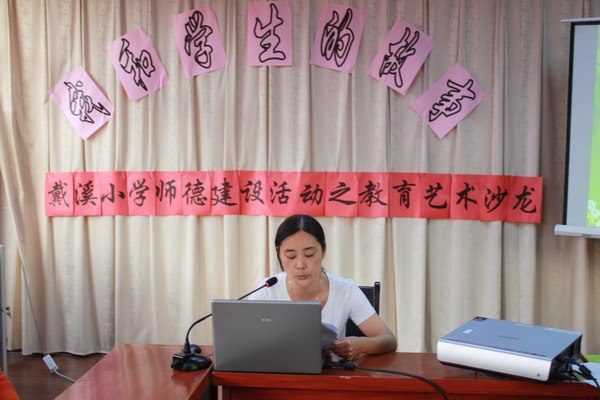 我和学生的故事
戴溪小学师德建设活动之教育艺术沙龙